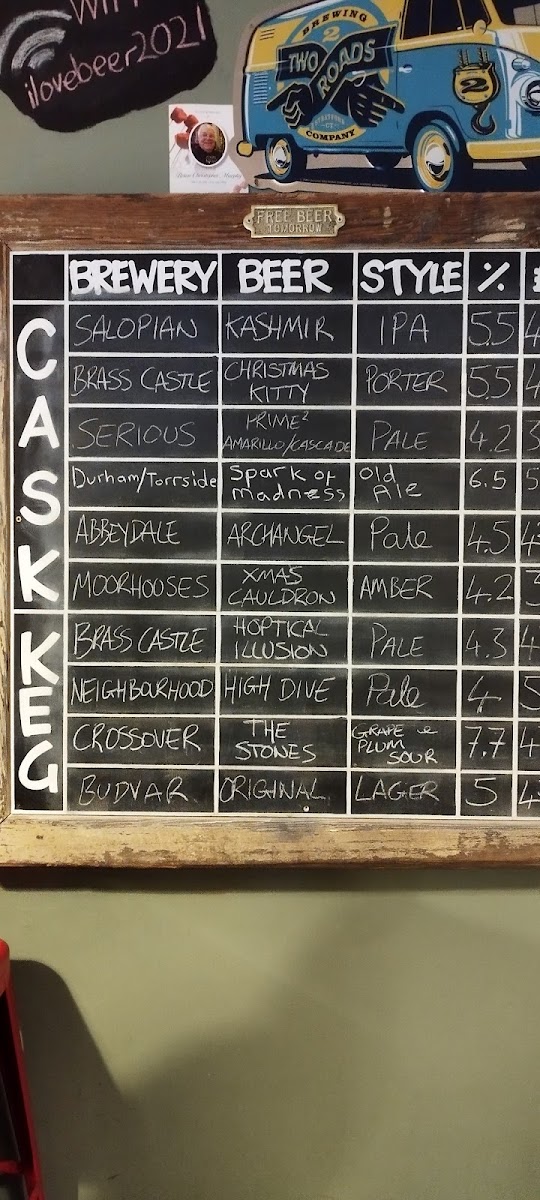 WIFI
ilovebeer2021
BREWING
2
TWO
ROADS
STRATFORD
CT
COMPANY
2
FREE BEER
TOMORROW
BREWERY BEER STYLE % £
CASK
SALOPIAN KASHMIR IPA 5.5 4
BRASS CASTLE CHRISTMAS KITTY PORTER 5.5 4
SERIOUS PRIME² AMARILLO/CASCADE PALE 4.2 3
Durham/Torrside Spark of madness Old Ale 6.5 5
ABBEYDALE ARCHANGEL Pale 4.5 4
MOORHOUSES XMAS CAULDRON AMBER 4.2 3
KEG
BRASS CASTLE HOPTICAL ILLUSION PALE 4.3 4
NEIGHBOURHOOD HIGH DIVE Pale 4 5
CROSSOVER THE STONES GRAPE & PLUM SOUR 7.7 4
BUDVAR ORIGINAL LAGER 5 4